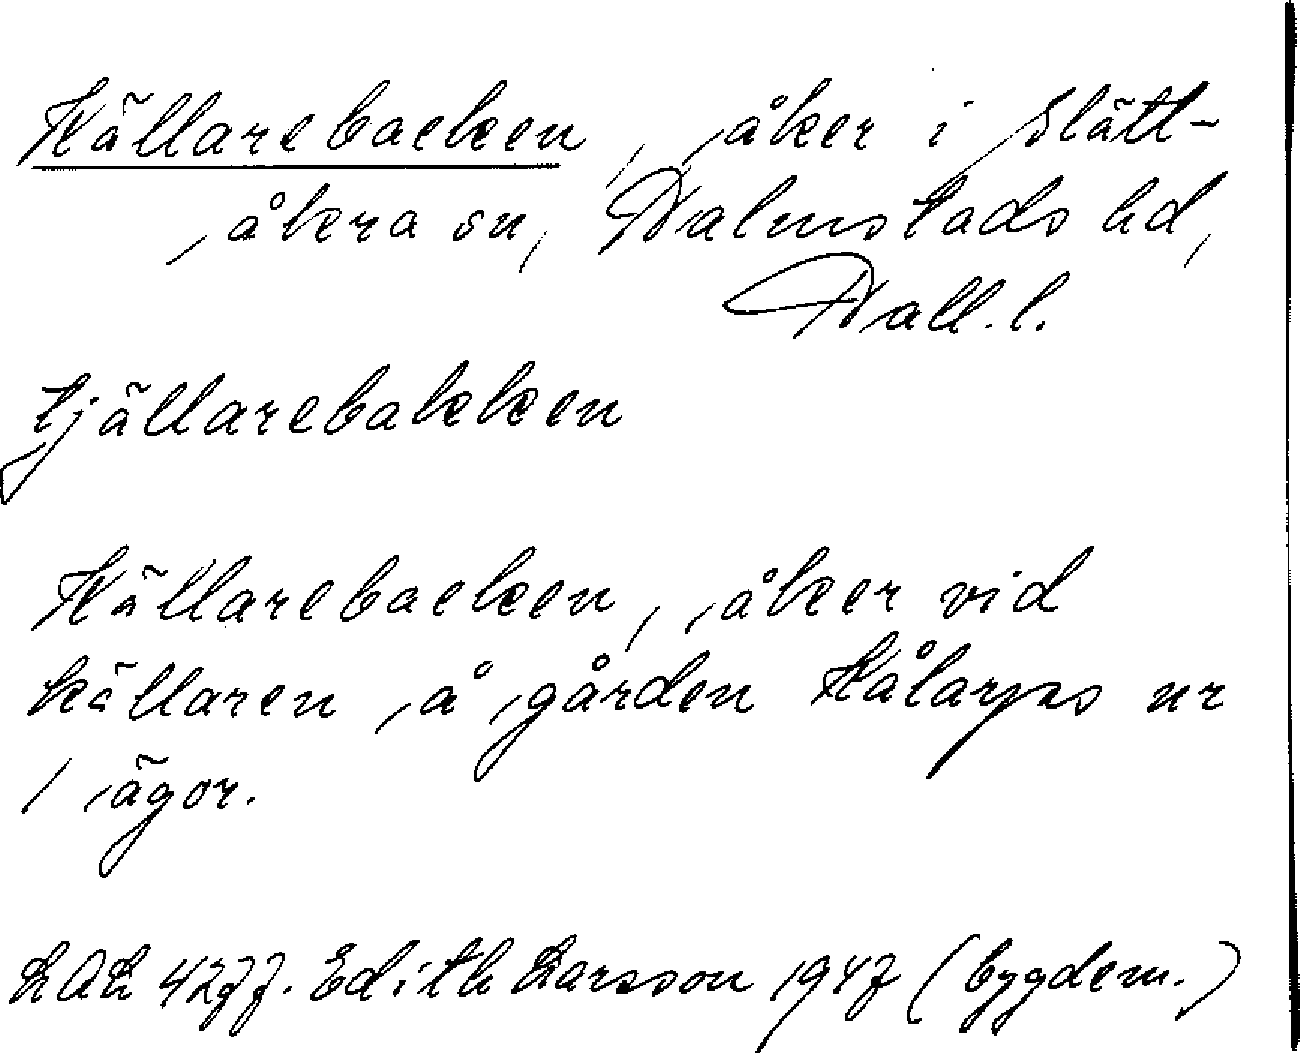 Källarebacken, åker i Slätt-
åkra sn, Halmstads hd,
Hall. l.
tjällarebakken
Källarebacken, åker vid
källaren å gården Kålarps nr
1 ägor.
LAL 4277. Edith Larsson 1947 (bygdem.)